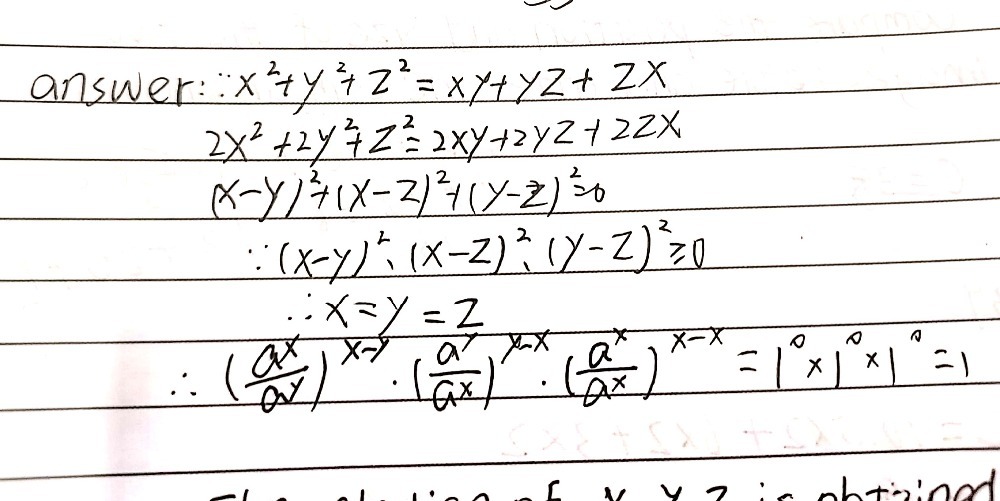 answer: ∵ x²+y²+z²=xy+yz+zx
2x²+2y²+z²=2xy+2yz+2zx
(x-y)²+(x-z)²+(y-z)²=0
∵(x-y)²、(x-z)²、(y-z)²≥0
∴x=y=z
∴ (aˣ/aʸ)ˣ⁻ʸ · (aʸ/aˣ)ʸ⁻ˣ · (aˣ/aˣ)ˣ⁻ˣ = 1⁰×1⁰×1⁰=1
of x, y, z is obtained